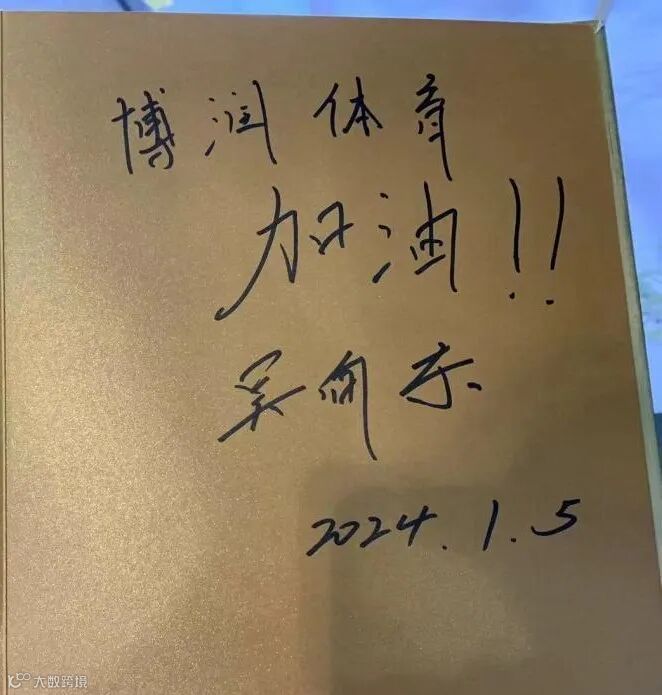 博润体育
加油!!
吴向东
2024.1.5
大数跨境